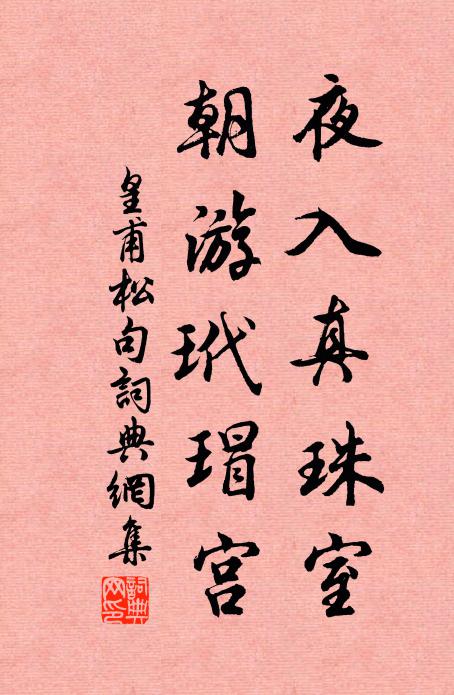 夜入真珠室
朝游玳瑁宫
皇甫松句詞典網集
詞典网印